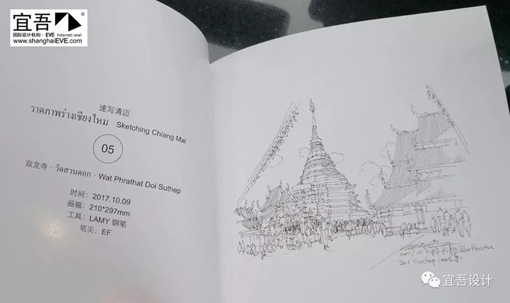 宜吾
国际设计机构·EVE International
www.shanghaiEVE.com
速写清迈
วาดภาพร่างเชียงใหม่ Sketching Chiang Mai
05
双龙寺 · วัดสวนดอก · Wat Phrathat Doi Suthep
时间：2017.10.09
画幅：210*297mm
工具：LAMY 钢笔
笔尖：EF
Wat Phrathat
Doi Suthep
宜吾设计